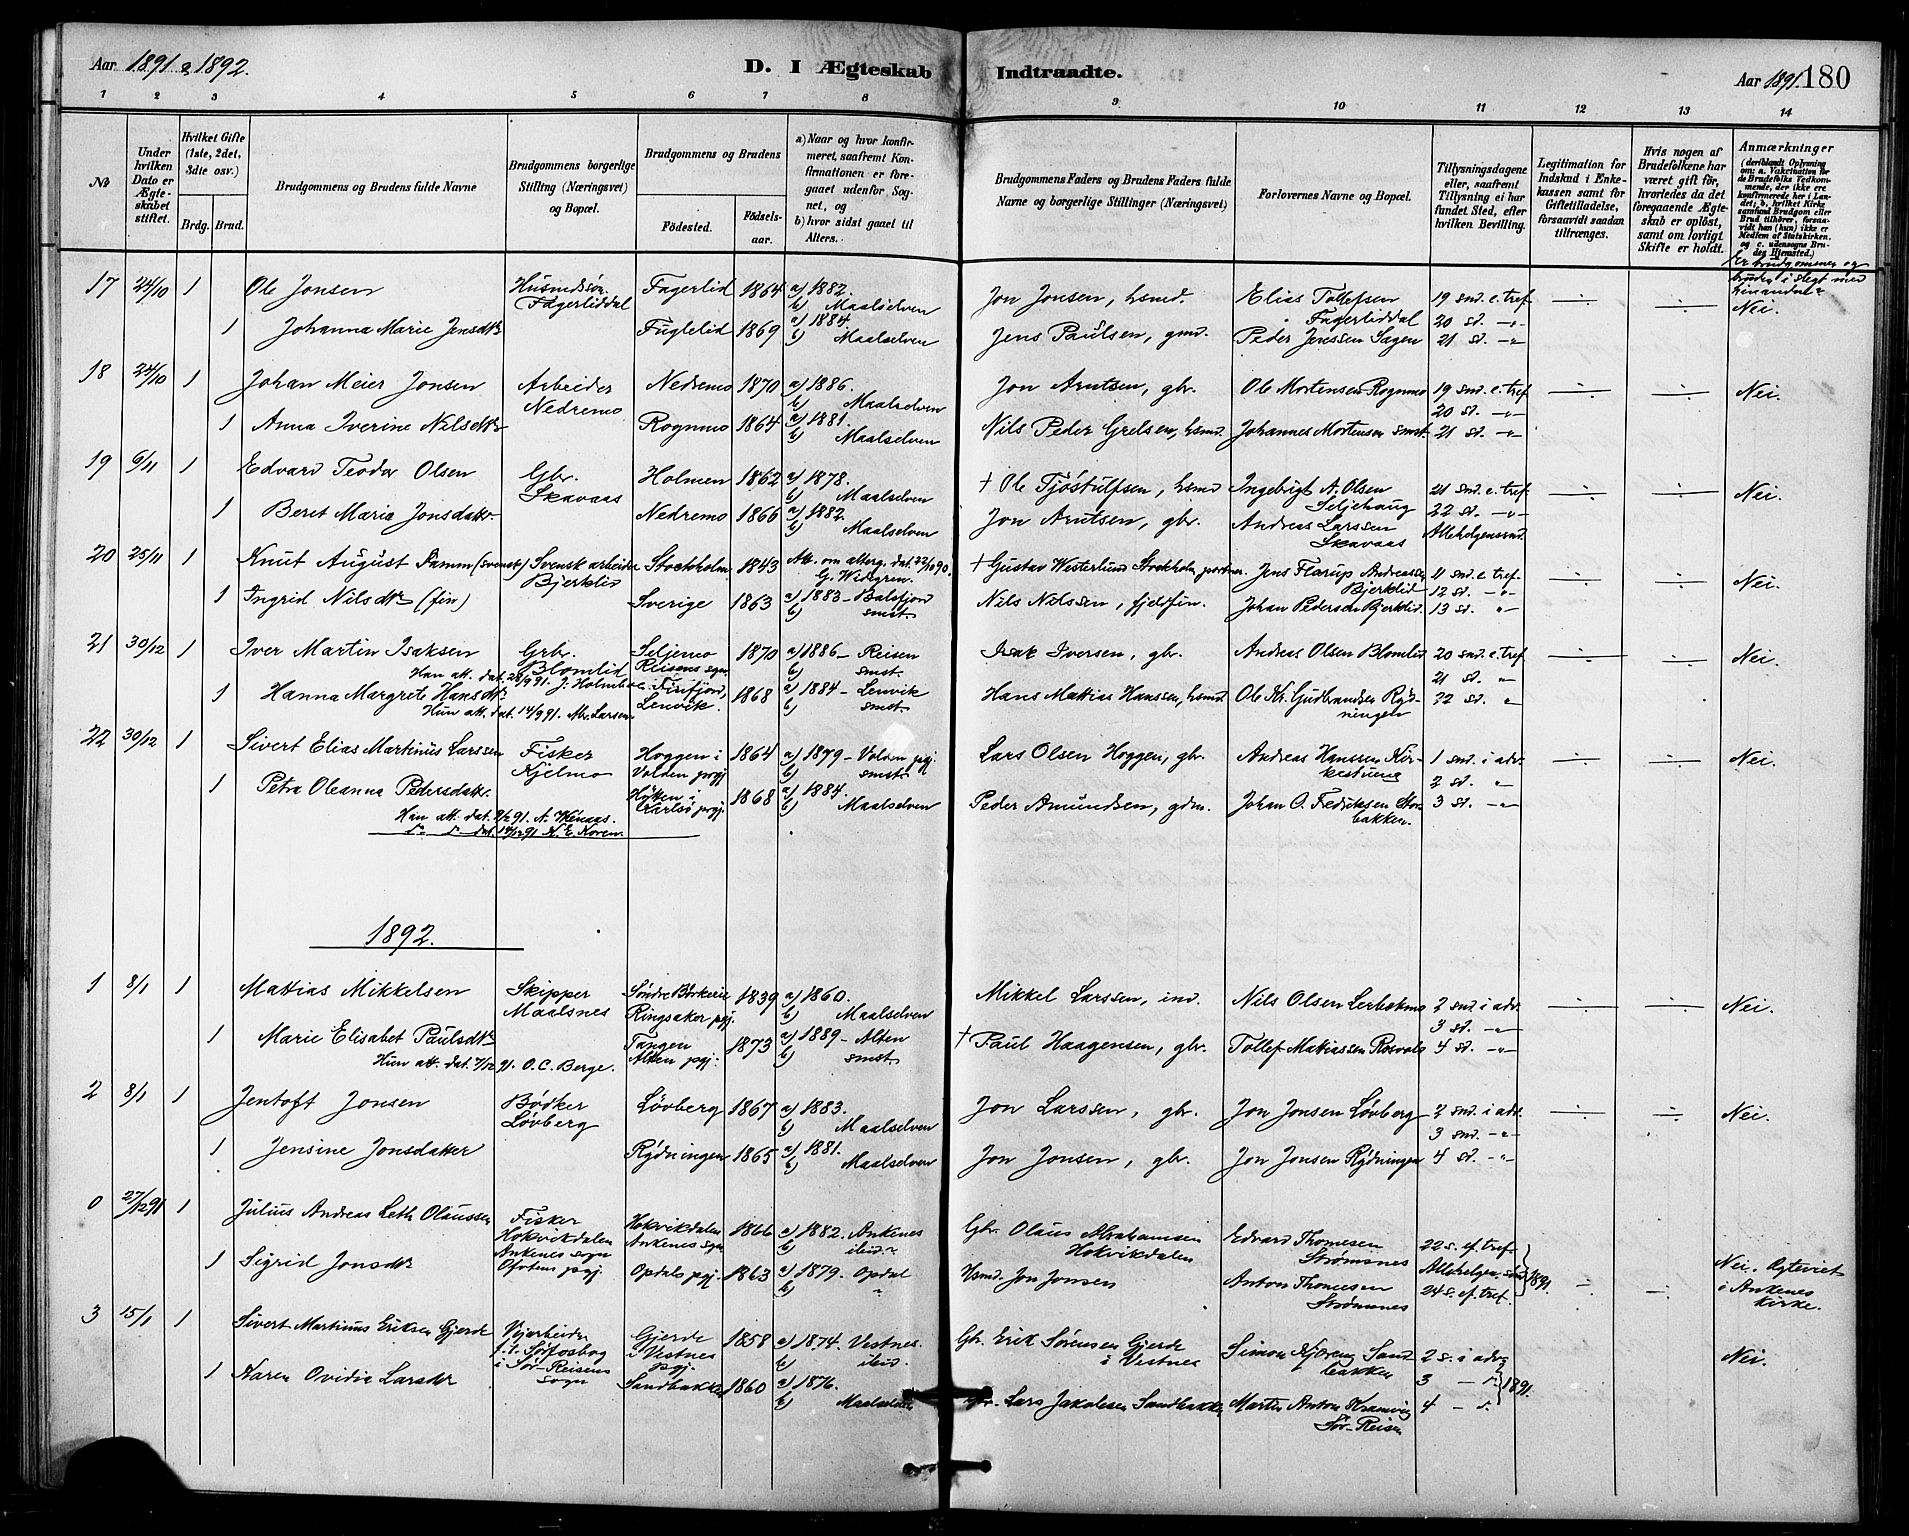 Aar 1891 & 1892.
D. I Ægteskab Indtraadte.
Aar 1891. 180
1 2 3 4 5 6 7 8 9 10 11 12 13 14
No
Under hvilken Dato er Ægteskabet stiftet.
Hvilket Gifte (1ste, 2det, 3die osv.)
Brdg. Brud.
Brudgommens og Brudens fulde Navne
Brudgommens borgerlige Stilling (Næringsvei) og Bopæl.
Brudgommens og Brudens
Fødested. Fødselsaar.
a) Naar og hvor konfirmeret, saafremt Konfirmationen er foregaaet udenfor Sognet, og
b) hvor sidst gaaet til Alters.
Brudgommens Faders og Brudens Faders fulde Navne og borgerlige Stillinger (Næringsvei)
Forlovernes Navne og Bopæl.
Tillysningsdagene eller, saafremt Tillysning ei har fundet Sted, efter hvilken Bevilling.
Legitimation for Indskud i Enkekassen samt for Giftetilladelse, forsaavidt saadan tiltrænges.
Hvis nogen af Brudefolkene har været gift før, hvorledes da det foregaaende Ægteskab er opløst, samt om lovligt Skifte er holdt.
Anmærkninger (deriblandt Oplysning om: a. Vakcination for de Brudefolks Vedkommende, der ikke ere konfirmerede her i Landet; b. hvilket Kirkesamfund Brudgom eller Brud tilhører, forsaavidt han (hun) ikke er Medlem af Statskirken, og c. udensogns Brudes Hjemsted.)
Er brudgommen og bruden i slegt med hinanden?
17 24/10 1 Ole Jonsen Husmdsøn Fagerlid 1864 a) 1882. Jon Jonsen, hsmd. Elias Tollefsen 19 snd. e. tref. Nei.
Fagerliddal b) Maalselven Fagerliddal 20 sd. -"-
1 Johanna Marie Jensdtr Fuglelid 1869 a) 1884. Jens Paulsen, gmd. Peder Jenssen Sagen 21 sd. -"-
b) Maalselven
18 24/10 1 Johan Meier Jonsen Arbeider Nedremo 1870 a) 1886. Jon Arntsen, gbr. Ole Mortensen Rognmo 19 snd. e. tref. Nei.
Nedremo b) Maalselven 20 sd. -"-
1 Anna Iverine Nilsdtr Rognmo 1864 a) 1881. Nils Peder Grelsen, hsmd. Johannes Mortensen smst. 21 sd. -"-
b) Maalselven
19 6/11 1 Edvard Teodor Olsen Gbr. Holmen 1862 a) 1878. † Ole Tjöstulfsen, hsmd Ingebrigt A. Olsen 21 snd. e. tref. Nei.
Skavaas b) Maalselven Seljehaug 22 sd. -"-
1 Beret Marie Jonsdatter Nedremo 1866 a) 1882. Jon Arntsen, gbr. Andreas Larssen Allehelgensnd.
b) Maalselven Skavaas
20 25/11 1 Knut August Damm (svensk) Svensk arbeider Stockholm 1843 Att. om alterg. dat. 22/10 90. † Gustav Westerlund Stockholm Jens Flarup Andreassen 11 snd. e. tref. Nei.
Bjerklid G. Widgren. Bjerklid 12 sd. -"-
1 Ingrid Nilsdtr (fin) Sverige 1863 a) 1883 – Balsfjord Nils Nilssen, fjeldfin. Johan Pedersen Bjerklid. 13 sd. "
b) smst.
21 30/12 1 Iver Martin Isaksen Grbr. Seljemo 1870 a) 1886 – Reisen Isak Iversen, gbr. Andreas Olsen Blomlid 20 snd. e. tref. Nei.
Blomlid Reisens sgn b) smst. 21 sd. "
Han att. dat. 28/9 91. J. Holmboe
1 Hanna Margrete Hansdtr Finfjord, Lenvik. 1868 a) 1884 – Lenvik Hans Mattias Hanssen, hsmd Ole Kr. Gudbrandsen Rydningen 22 sd. "
Hun att. dat. 14/9 91. Mr. Larsen b) smst.
22 30/12 1 Sivert Elias Martinus Larssen Fisker Hoggen i 1864 a) 1879 – Volden pgj. Lars Olsen Hoggen, gbr. Andreas Hanssen Kirkestuen 1 snd. i adv. Nei.
Kjelmo Volden prgj b) smst. 2 sd. "
1 Petra Oleanna Pedersdatter. Høtten i Carlsö pgj. 1868 a) 1884. Peder Amundsen, gdm. Johan O. Fedriksen Storbakken. 3 sd. -"-
b) Maalselven
Han att. dat. 9/12 91. A. Wenaas.
do do dat. 14/12 91 N. E. Koren.
1892.
1 8/1 1 Mattias Mikkelsen Skipper Søndre Børkerie 1839 a) 1860. Mikkel Larssen, ind. Nils Olsen Lerbakmo 2 snd. i adv. Nei.
Maalsnes Ringsaker pgj. b) Maalselven 3 sd. -"-
1 Marie Elisabet Paulsdtr Tangen 1873 a) 1889 – Alten † Paul Haagensen, gbr. Tollef Mattiassen Rosvold 4 sd. -"-
Hun att. dat. 7/12 91. O. C. Berge. Alten pgj. b) smst.
2 8/1 1 Jentoft Jonsen Bödker Løvberg 1867 a) 1883. Jon Larssen, gbr. Jon Jonsen Løvberg 2 snd. i adv. Nei.
Løvberg b) Maalselven 3 snd. -"-
1 Jensine Jonsdatter Rydningen 1865 a) 1881. Jon Jonsen, gbr. Jon Jonsen Rydningen 4 sd. -"-
b) Maalselven
0 27/12 91 1 Julius Andreas Leth Olaussen Fisker Hokvikdalen 1866 a) 1882. Ankenes Gbr. Olaus Abrahamsen Edvard Thomesen 22 s. ef. tref.
Hokvikdalen Ankenes sgn b) ibid. Hokvikdalen Strømsnes Allehelgen snd 1891.
1 Sigrid Jonsdtr Ankenes sogn Opdals pgj. 1863 a) 1879. Opdal Hsmd. Jon Jonsen Anton Thomesen 24 s. ef. tref. Nei. Egteviet i Ankenes kirke.
Ofotens pgj. b) " Strømsnes
3 15/1 1 Sivert Martinus Eriksen Gjerde Veiarbeider Gjerde 1858 a) 1874. Vestnes Gbr. Erik Sørensen Gjerde Simon Kjæreng Sandbakken 2 s. i adv. Nei.
f. t. Sørfosbog i Vestnes pgj. b) ibid. i Vestnes 3 - " 1891.
1 Karen Ovidia Larsdtr i Sør-Reisens sogn Sandbakken 1860 a) 1876. Gbr. Lars Jakobsen Sandbakken Martin Anton Kramvig 4 - "
b) Maalselven Sør-Reisen